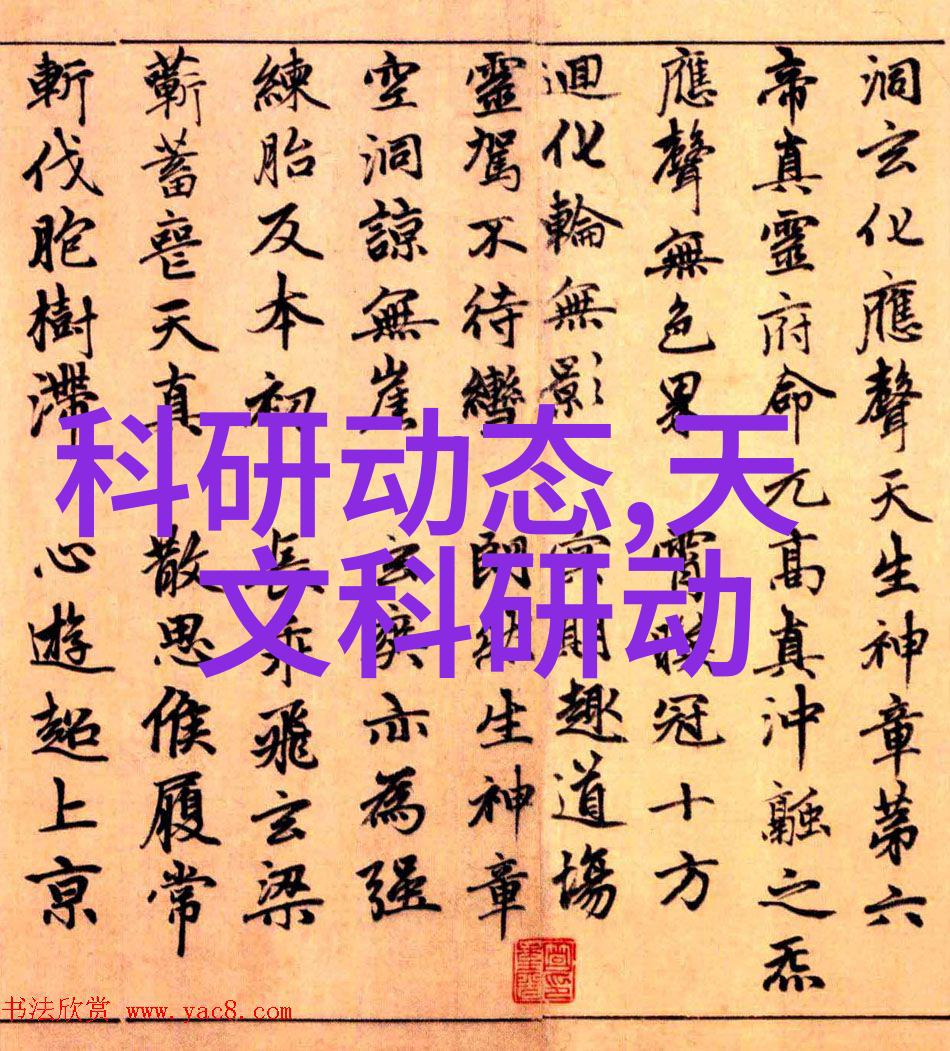 洞玄化應聲天生神章第六
帝真靈府命元高真沖融之炁
應聲無色界 霄 冠十方
迴化輪無影 冥期趣道場
靈駕不待轡 朗 生神章
空洞諒無崖 玄 亦為強
練胎反本初 長乘飛玄梁
蘄蓄 天真 散思候履常
斬伐胞樹滯 心遊超上京
科研动态,天
文科研动
书法欣赏 www.yac8.com